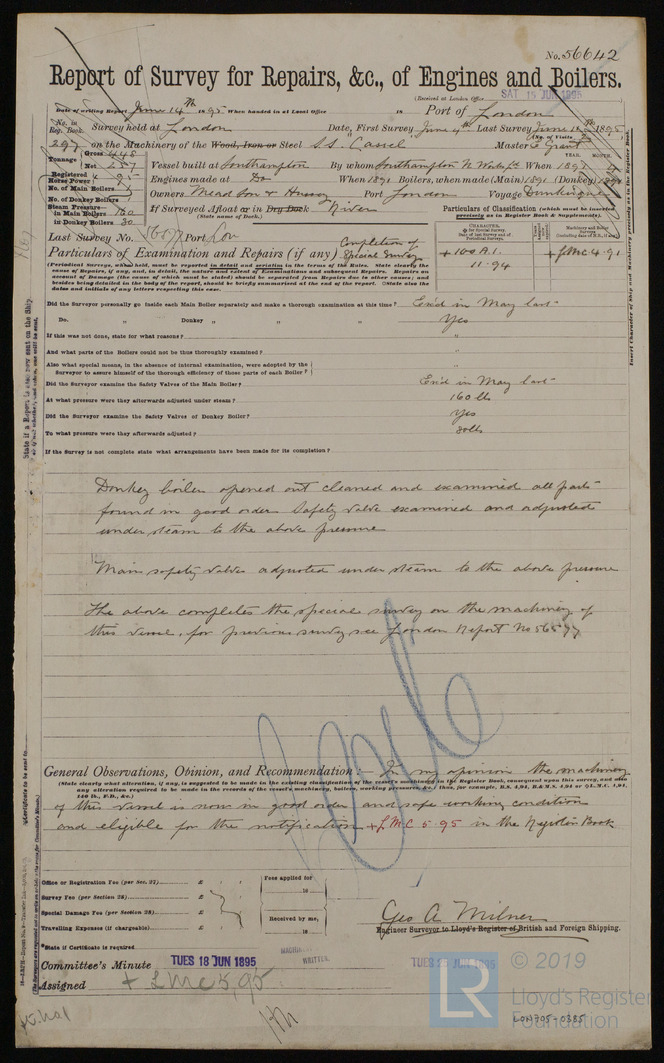 No. 56642
Report of Survey for Repairs, &c., of Engines and Boilers.
(Received at London Office SAT 15 JUN 1895
Date of writing Report June 14th 1895 When handed in at Local Office 18 Port of London
No. in Reg. Book. Survey held at London Date, First Survey June 4th Last Survey June 14th 1895
(No. of Visits
297 on the Machinery of the Wood, Iron or Steel S.S. Cassel Master E Grant
Tonnage Gross 448 Net 257
Vessel built at Southampton By whom Southampton N. Works Ld When 1891
YEAR. MONTH.
Registered Horse Power 95
Engines made at Do When 1891 Boilers, when made (Main) 1891 (Donkey) 1891
No. of Main Boilers 1
No. of Donkey Boilers 1
Owners Mead Son & Hussey Port London Voyage
Steam Pressure in Main Boilers 160
in Donkey Boilers 30
If Surveyed Afloat or in Dry Dock River
(State name of Dock.)
Particulars of Classification (which must be inserted precisely as in Register Book & Supplements).
Last Survey No. 56577 Port Lon
CHARACTER.
+ 100 A.1.
11.94
+ LMC 4.91
Particulars of Examination and Repairs (if any) Completion of Special Survey
(Periodical Surveys, when held, must be reported in detail and seriatim in the terms of the Rules. State clearly the
cause of Repairs, if any, and, in detail, the nature and extent of Examinations and subsequent Repairs. Repairs on
account of Damage (the cause of which must be stated) should be separated from Repairs due to other causes; and
besides being detailed in the body of the report, should be briefly summarised at the end of the report. State also the
dates and initials of any letters respecting this case.
Did the Surveyor personally go inside each Main Boiler separately and make a thorough examination at this time? Exd in May last
Do. „ Donkey „ „ „ „ Yes
If this was not done, state for what reasons? „
And what parts of the Boilers could not be thus thoroughly examined? „
Also what special means, in the absence of internal examination, were adopted by the
Surveyor to assure himself of the thorough efficiency of those parts of each Boiler? „
Did the Surveyor examine the Safety Valves of the Main Boiler? Exd in May last
At what pressure were they afterwards adjusted under steam? 160 lbs
Did the Surveyor examine the Safety Valves of Donkey Boiler? Yes
To what pressure were they afterwards adjusted? 30lbs
If the Survey is not complete state what arrangements have been made for its completion?
Donkey boiler opened out cleaned and examined all parts
found in good order. Safety valve examined and adjusted
under steam to the above pressure
Main safety valves adjusted under steam to the above pressure
The above completes the special survey on the machinery of
this vessel, for previous survey see London Report No 56577
General Observations, Opinion, and Recommendation:— In my opinion the machinery
(State clearly what alteration, if any, is suggested to be made in the existing classification of the vessel's machinery in the Register Book, consequent upon this survey, and also
any alteration required to be made in the records of the vessel's machinery, boilers, working pressures, &c.; thus, for example, B.S. 4,94, B.&M.S. 4,94 or +L.M.C. 4,94,
140 lb., F.D., &c.)
of this vessel is now in good order and safe working condition
and eligible for the notification + L.M.C 5.95 in the Register Book
Office or Registration Fee (per Sec. 27) £ : :
Survey Fee (per Section 28) £ : :
Special Damage Fee (per Section 28) £ : :
Travelling Expenses (if chargeable) £ : :
Fees applied for
18
Received by me,
18
Geo A. Milner
Engineer Surveyor to Lloyd's Register of British and Foreign Shipping.
*State if Certificate is required
WRITTEN.
Committee's Minute TUES 18 JUN 1895
TUES 25 JUN 1895
Assigned + LMC 5,95
© 2019
LR
Lloyd's Register
Foundation
LON705-0385